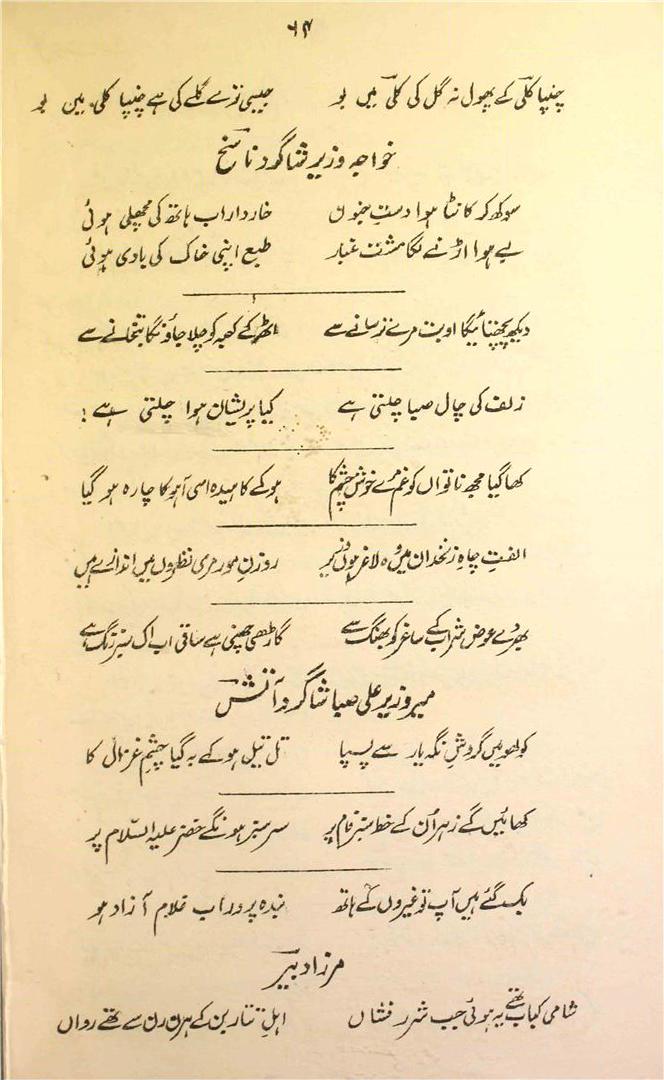 ۶۴
چنپا کلی کے پھول نہ گل کی کلی میں بو جیسی ترے گلے کی ہے چنپا کلی میں بو
خواجہ وزیر شاگرد ناسخ
سوکھ کر کانٹا ہوا دست جنوں خاردار اب ہاتھ کی مچھلی ہوئی
بے ہوا اڑنے لگا مشت غبار طبع اپنی خاک کی بادی ہوئی
دیکھ پچھتائیگا او بت مرے ترسانے سے اٹھ کے کعبہ کو چلا جاؤنگا بتخانے سے
زلف کی چال صبا چلتی ہے کیا پریشان ہوا چلتی ہے!
کھا گیا مجھ ناتواں کو غم مرے خوش چشم کا ہو کے کاہیدہ اسی آہو کا چارہ ہو گیا
الفتِ چاہِ زنخدان میں وہ لاغر ہوں وزیر روزنِ مور مری نظروں میں اندارے ہیں
بھر دے عوض شراب کے ساغر کو بھنگ سے گاڑھی چھنی ہے ساقی اب اک سبز رنگ سے
میر وزیر علی صبا شاگرد آتش
کولھو میں گردشِ نگہ یار سے پسپا تل تیل ہو کے بہ گیا چشمِ غزال کا
کھائیں گے زہر ان کے خط سبز فام پر سر سبز ہونگے خضر علیہ السلام پر
بک گئے ہیں آپ تو غیروں کے ہاتھ بندہ پرور اب غلام آزاد ہو
مرزا دبیر
شامی کباب تھے یہ ہوئی جب شرر فشاں اہلِ تتار بن کے ہرن رن سے تھے رواں